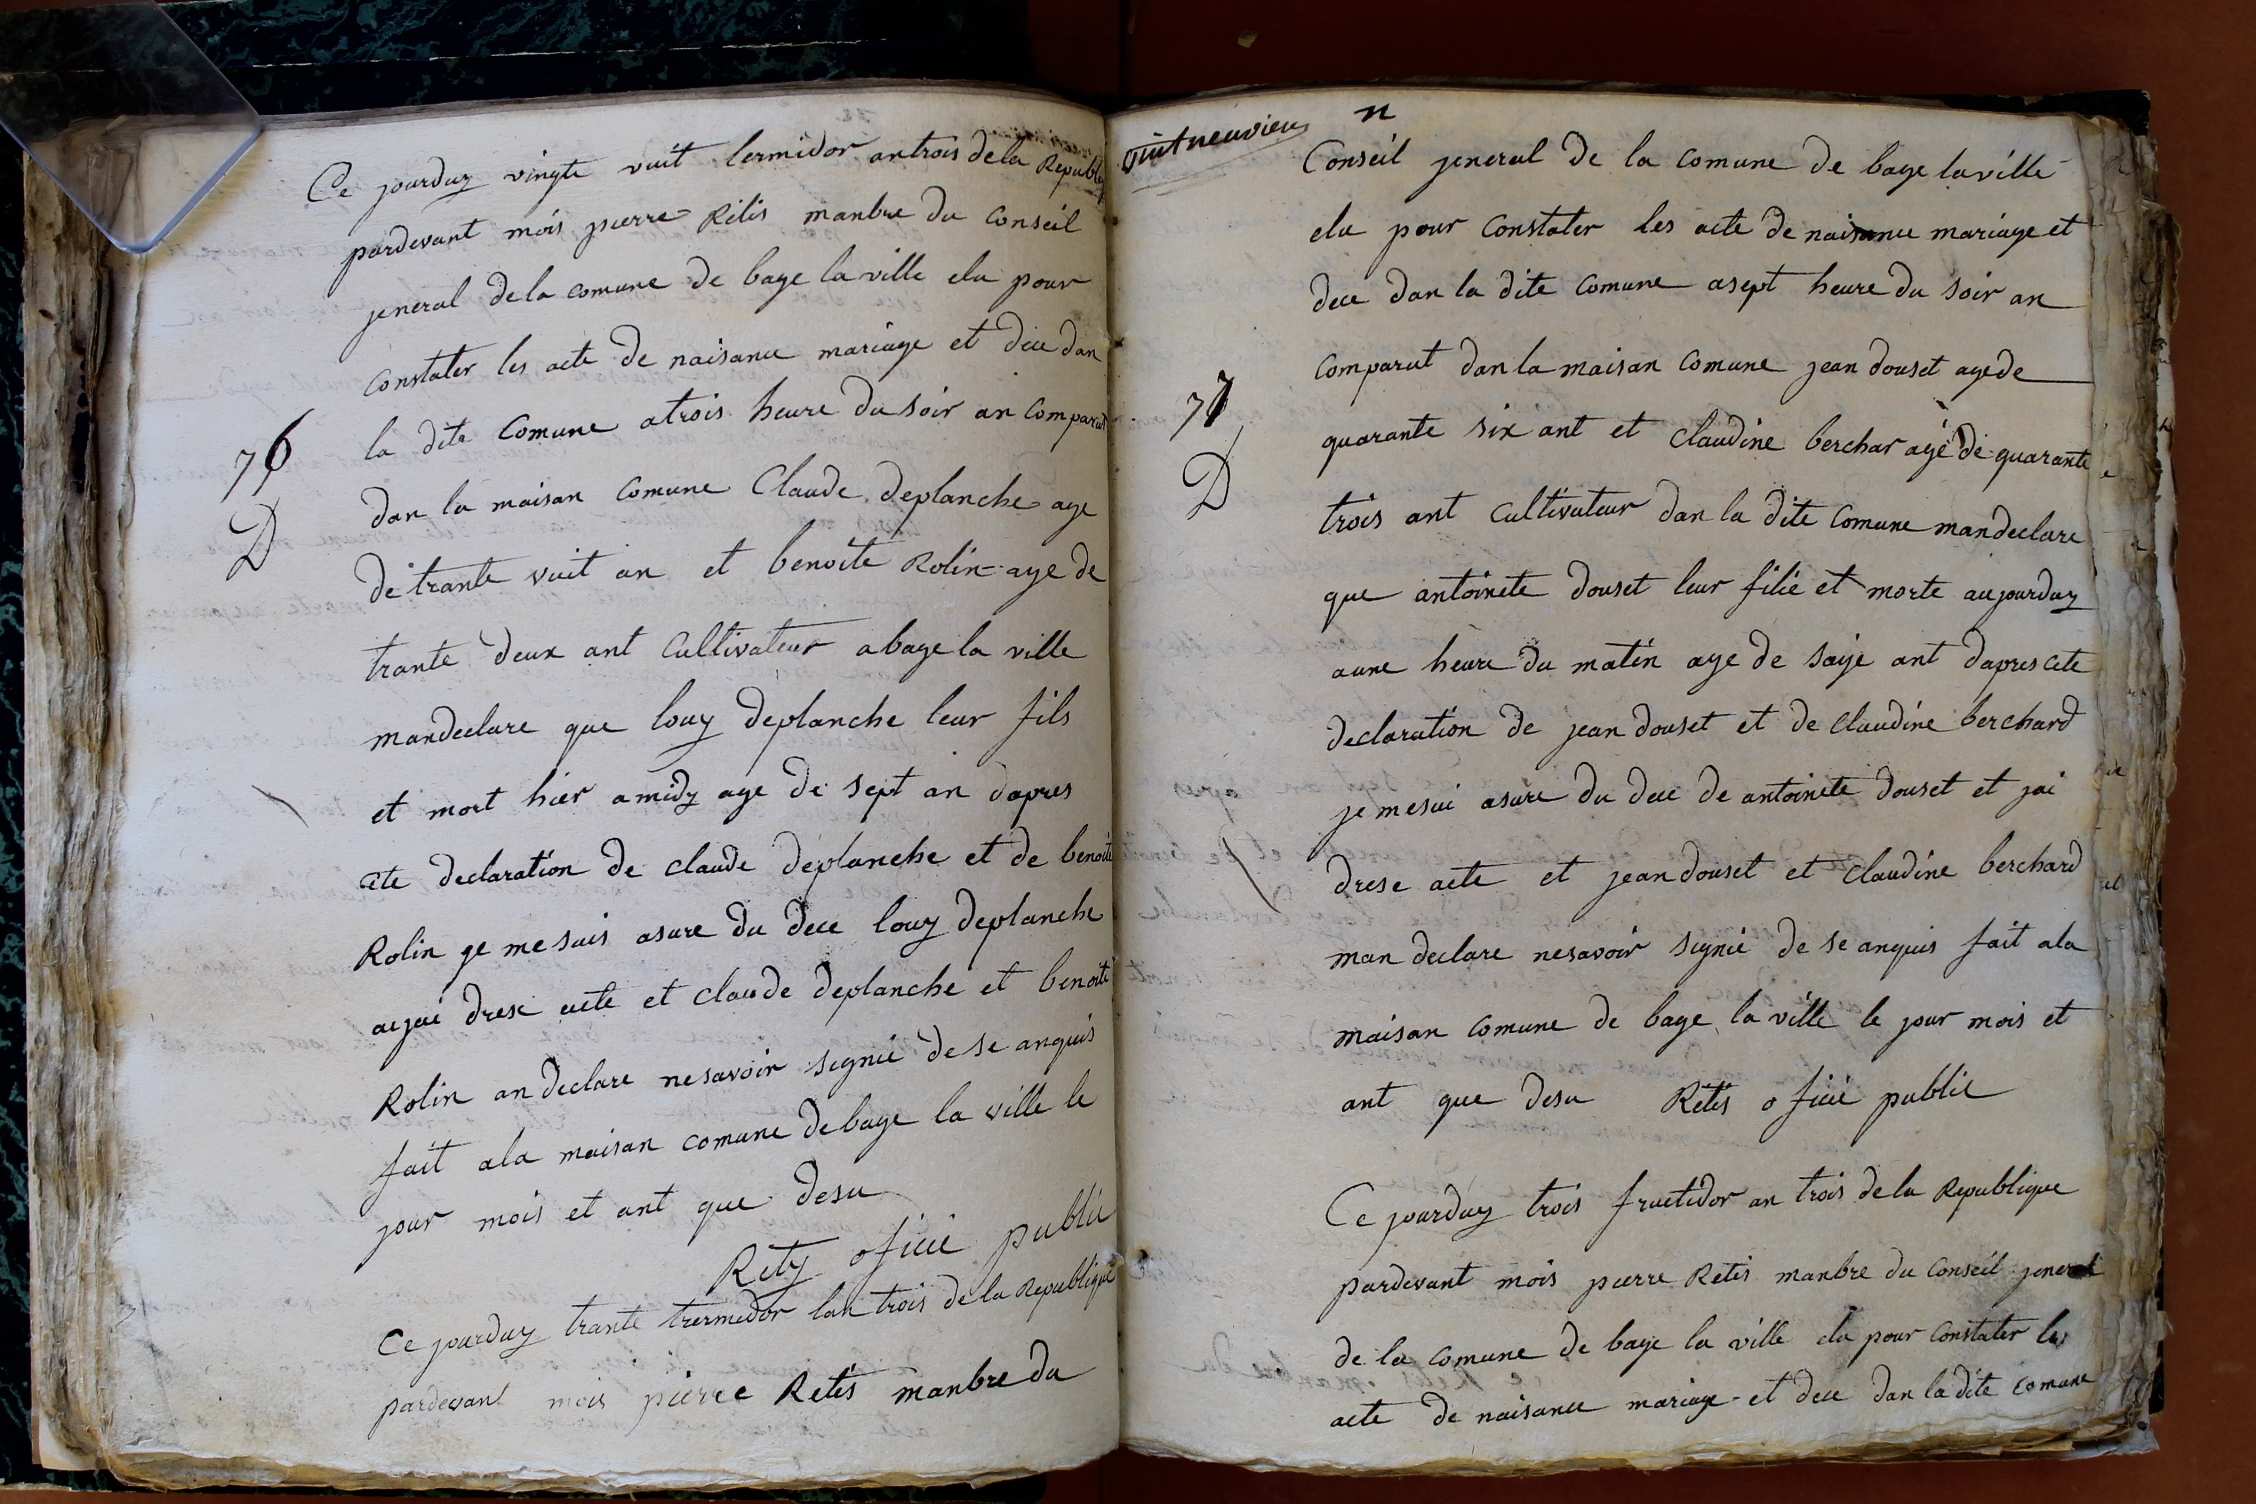 Ce jourduy vingte vuit termidor antrois dela Republiq
pardevant mois pierre Rétis manbre du Conseil
jeneral dela comune de bage la ville elu pour
constater les acte de naisance mariage et dece dan
la dite Comune atrois heure du soir an Comparut
76
D
dan la maisan comune Claude deplanche age
de trante vuit an et benoite Rolin age de
trante deux ant Cultivateur abage la ville
mandeclare que louy deplanche leur fils
et mort hier amidy age de sept an dapres
cete declaration de claude deplanche et de benoite
Rolin ge me suis asure du dece louy deplanche
aijai drese acte et claude deplanche et benoite
Rolin an declare nesavoir signié de se anquis
fait ala maisan comune debage la ville le
jour mois et ant que desu
Rety oficié public
Ce jourduy trante trermidor lan trois de la Republique
pardevant mois pierre Retis manbre du
vintneuvieu
n
Conseil jeneral de la Comune de bage laville
elu pour Constater les acte de naisance mariage et
dece dan la dite Comune asept heure du soir an
comparut dan la maisan Comune jean douset agede
77
D
quarante six ant et claudine berchar agé de quarante
trois ant Cultivateur dan la dite Comune mandeclare
que antoinete douset leur filie et morte aujourduy
aune heure du matin age de saije ant dapres cete
declaration de jean douset et de claudine berchard
je mesui asure du dece de antoinete douset et jai
drese acte et jean douset et claudine berchard
man declare nesavoir signié de se anquis fait ala
maisan comune de bage la ville le jour mois et
ant que desu Rétis oficié public
Ce jourduy trois fructidor an trois de la Republique
pardevant mois pierre Retis manbre du Conseil jeneral
de la comune de bage la ville elu pour Constater les
acte de naisance mariage et dece dan la dite Comune